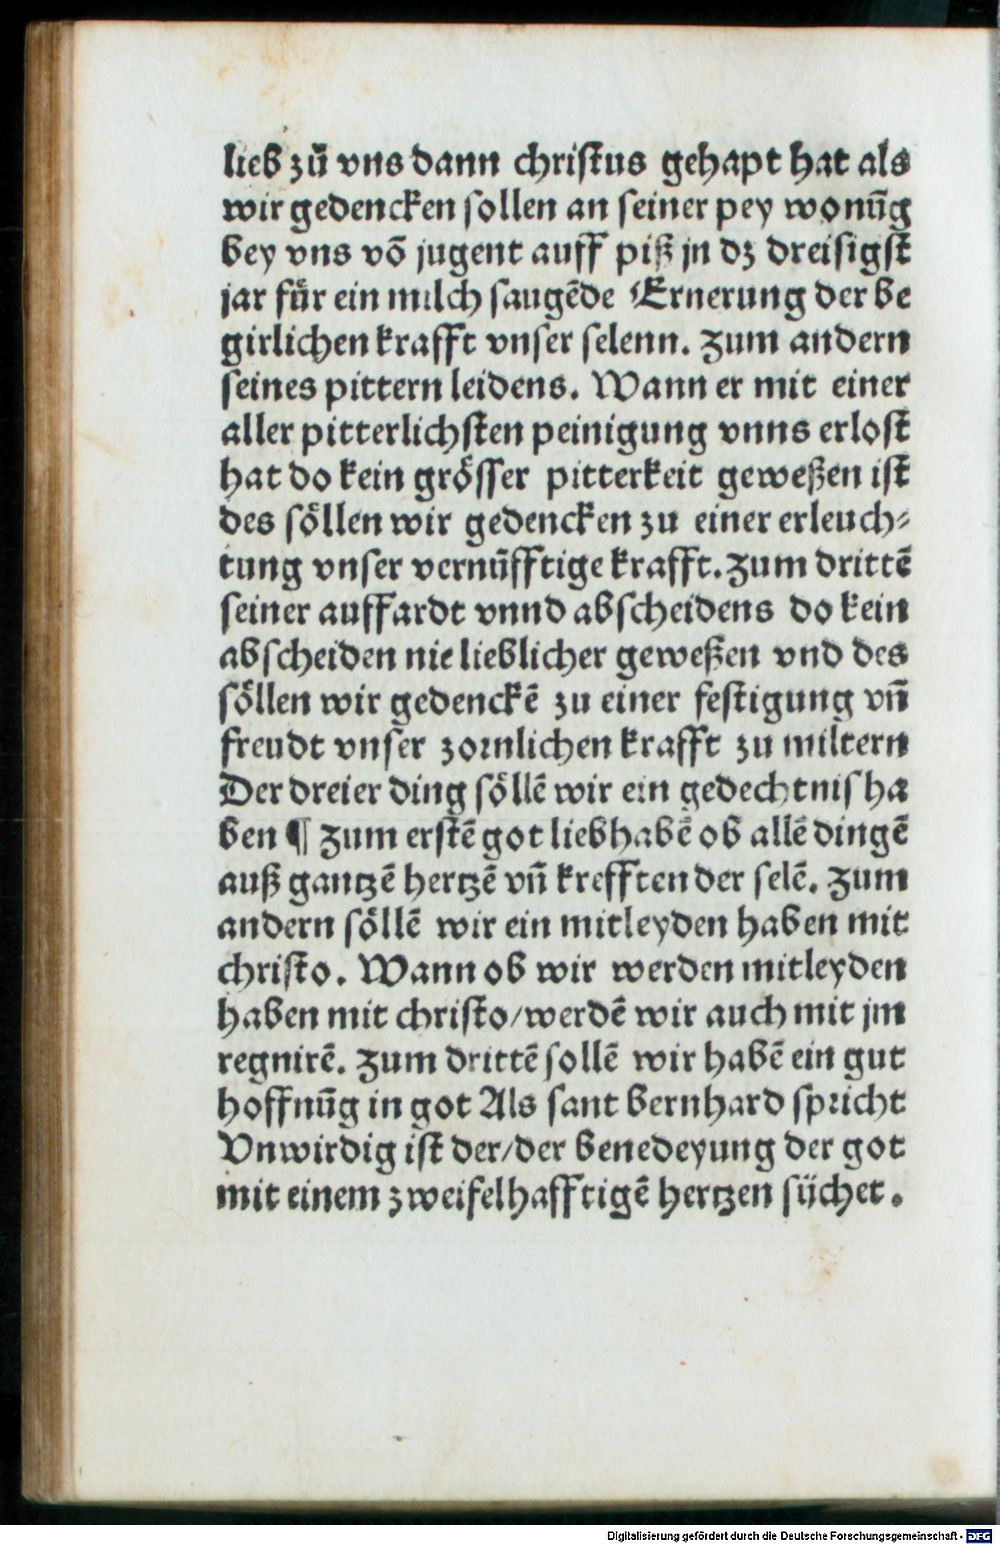 lieb zů vns dann christus gehapt hat als
wir gedencken sollen an seiner pey wonūg
bey vns vō jugent auff piß jn dz dreisigst
jar fůr ein milch saugēde Ernerung der be
girlichen krafft vnser selenn. Zum andern
seines pittern leidens. Wann er mit einer
aller pitterlichsten peinigung vnns erlost
hat do kein grȯsser pitterkeit geweßen ist
des sȯllen wir gedencken zu einer erleuch⸗
tung vnser vernůfftige krafft. Zum drittē
seiner auffardt vnnd abscheidens do kein
abscheiden nie lieblicher geweßen vnd des
sȯllen wir gedenckē zu einer festigung vn̄
freudt vnser zornlichen krafft zu miltern
Der dreier ding sȯllē wir ein gedechtnis ha
ben ¶ Zum erstē got lieb habē ob allē dingē
auß gantzē hertzē vn̄ krefften der selē. Zum
andern sȯllē wir ein mitleyden haben mit
christo. Wann ob wir werden mitleyden
haben mit christo/werdē wir auch mit jm
regnirē. Zum drittē sollē wir habē ein gut
hoffnūg in got Als sant bernhard spricht
Vnwirdig ist der/der benedeyung der got
mit einem zweifelhafftigē hertzen süchet.
Digitalisierung gefördert durch die Deutsche Forschungsgemeinschaft - DFG